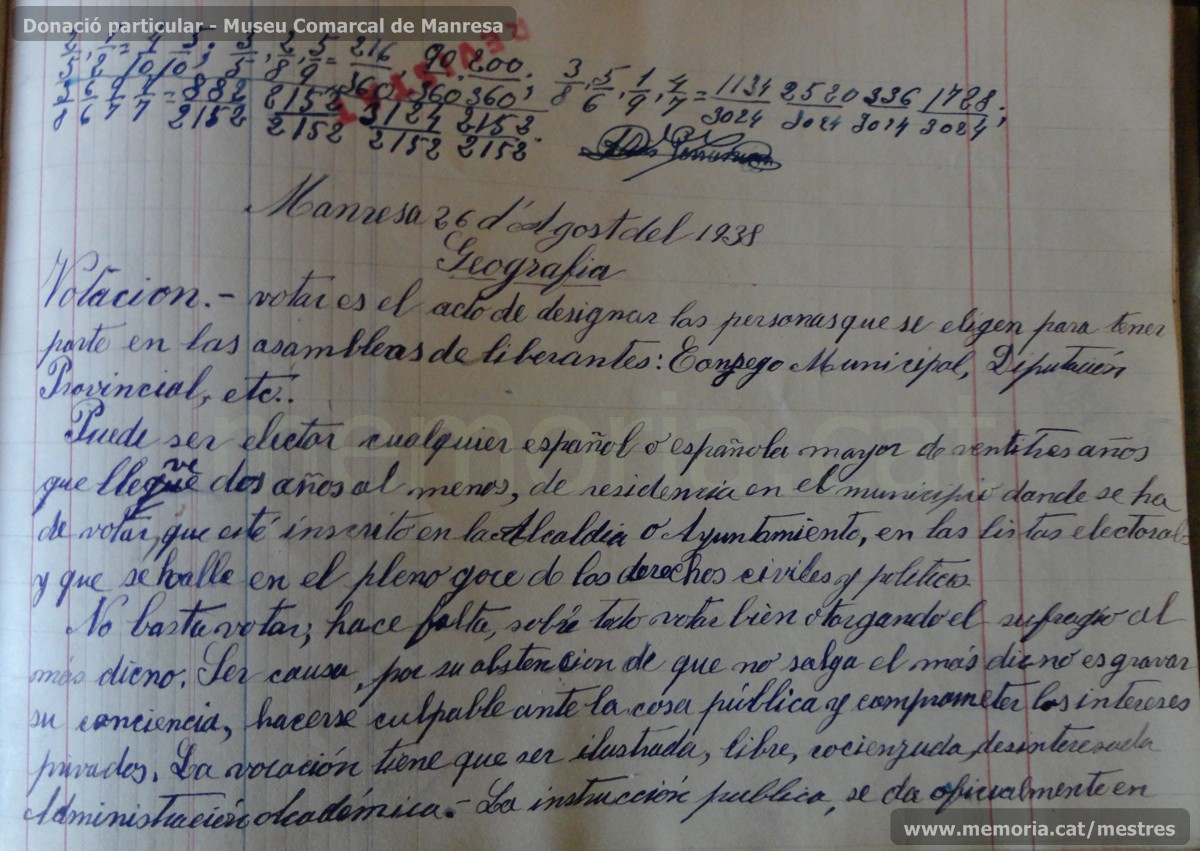 Donació particular - Museu Comarcal de Manresa
REVISTAT
2/5, 1/2 = 4/10 5/10; 3/5, 2/8, 5/9 = 216/360, 90/360, 200/360; 3/8, 5/6, 1/9, 4/7 = 1134/3024 2520/3024 336/3024 1728/3024;
2152 2152 3124 2152
2152 2152 2152
Manresa 26 d'Agost del 1938
Geografia
Votacion. - votar es el acto de designar las personas que se eligen para tener
parte en las asambleas de liberantes: Consego Municipal, Diputación
Provincial, etc..
Puede ser elector cualquier español o española mayor de ventitres años
que lleve dos años al menos, de residencia en el municipio dande se ha
de votar, que esté inscrito en la Alcaldia o Ayuntamiento, en las listas electorales
y que se halle en el pleno goce de los derechos civiles y politicos.
No basta votar; hace falta, sobre todo votar bien otorgando el sufragio al
más dicno. Ser causa, por su abstencion de que no salga el más dicno es gravar
su conciencia, hacerse culpable ante la cosa pública y comprometer los intereses
privados. La vocación tiene que ser ilustrada, libre, cocienzuda, desinteresada
Administración Académica. - La instrucción publica, se da oficialmente en
memoria.cat
www.memoria.cat/mestres